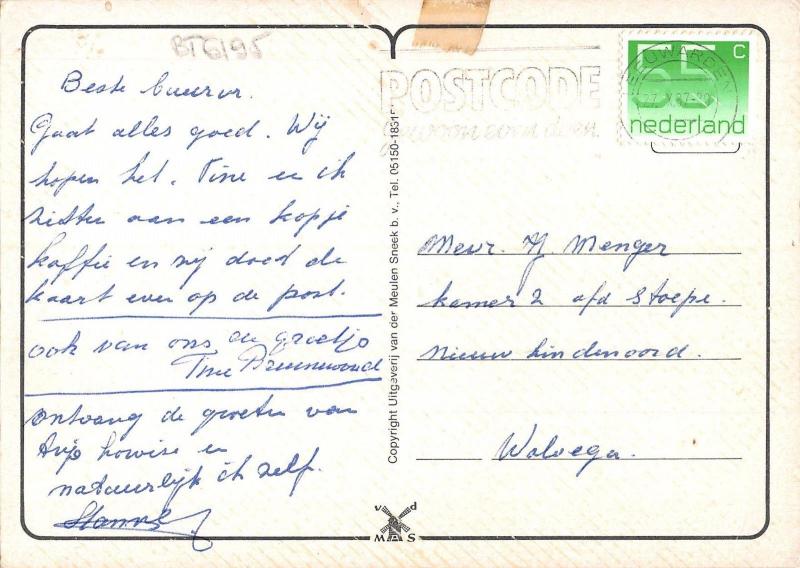 BT6/95
Beste buurvr.
Gaat alles goed. Wij
hopen het. Tine en ik
zitten aan een kopje
koffie en zij doet de
kaart even op de post.
ook van ons de groetjo
Tine
ontvang de groeten van
en
natuurlijk ik zelf.
Copyright Uitgeverij van der Meulen Sneek b. v., Tel. 05150-1851
POSTCODE
gewoon even doen
55 C
nederland
LEEUWARDEN
Mevr. Y. Menger
kamer 2 afd Stoepe.
Nieuw Lindenoord.
Wolvega.
v d
M A S